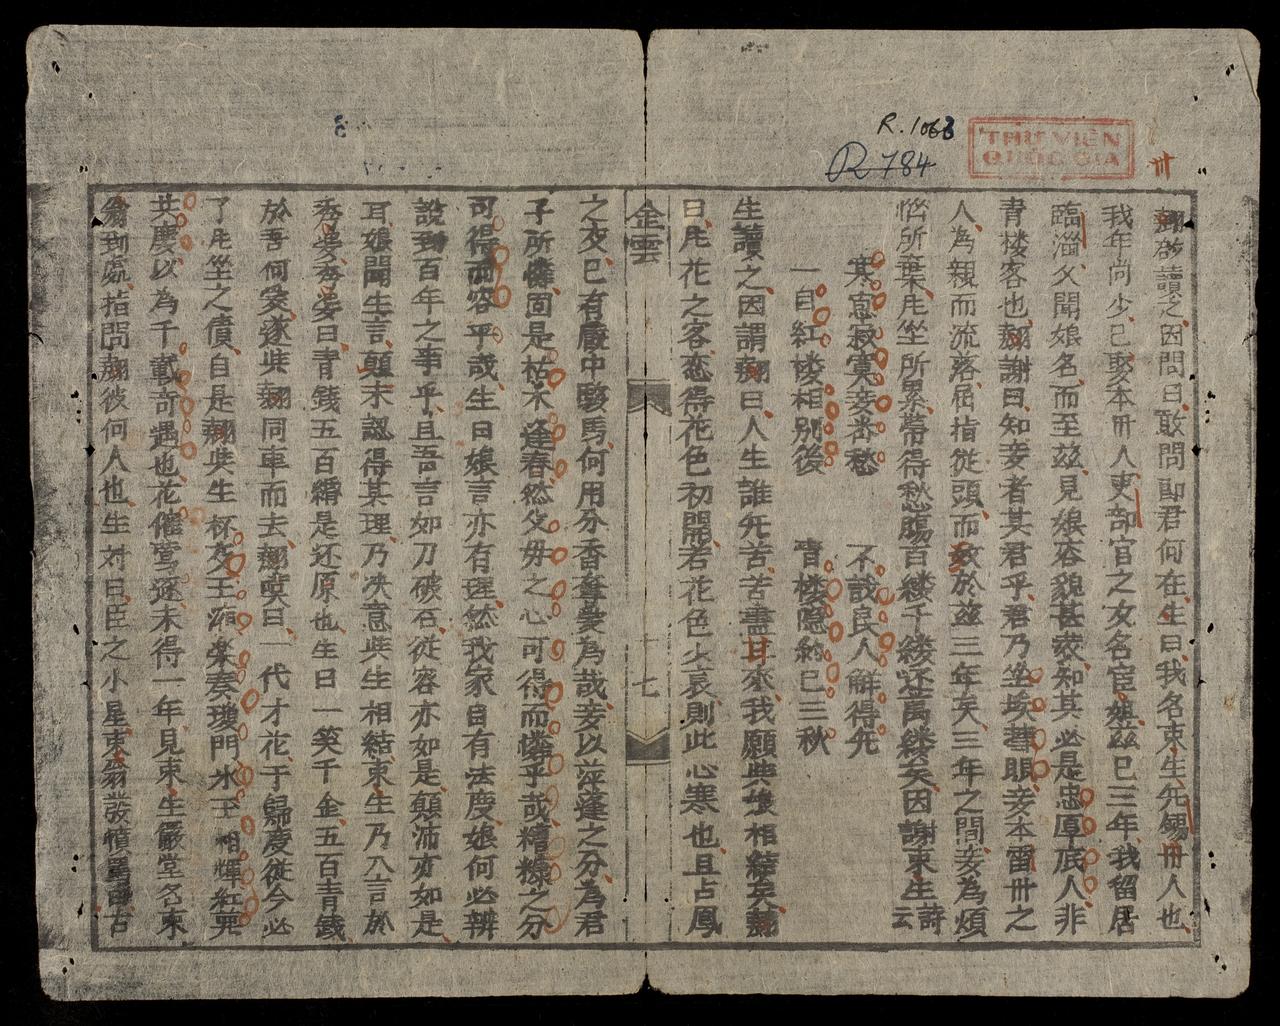 R.1063
R 784
THƯ VIỆN
QUỐC GIA
卅
翹啓讀之因問曰敢問郎君何在生曰我名束生先錫卅人也
我年尚少已娶本卅人吏部官之女名宦娘茲已三年我留居
臨淄久聞娘名而至茲見娘容貌甚羙知其必是忠厚底人非
青楼客也翹謝曰知妾者其君乎君乃坐埃著眼妾本雷卅之
人為親而流落屈指從頭而
於茲三年矣三年之間妾為煩
惱所棄
坐所累幕得愁腸百縷千縷还萬縷矣因謝束生詩云
寒窓寂寞妾番愁 不
良人解得先
一自紅楼相別後 青楼隐約已三秋
生讀之因謂翹曰人生誰先苦苦盡甘來我願與娘相結矣翹
曰
花之客恋得花色初開若花色少衰則此心寒也且占鳳
金雲
十七
之交已有廄中駿馬何用分香奩羙為哉妾以萍蓬之分為君
子所憐固是枯木逢春然父母之心可得而憐乎哉糟糠之分
可得而容乎哉生曰娘言亦有理然我家自有法度娘何必辨
說到百年之事乎且吾言如刀破石從容亦如是顛沛亦如是
耳娘聞生言顛末認得其理乃决意與生相結束生乃入言於
秀婆秀婆曰青銭五百緡是还原也生曰一笑千金五百青銭
於吾何愛遂與翹同車而去翹嘆曰一代才花于歸度從今必
了
坐之債自是翹與生杯交玉
楽奏瓊門水玉相輝紅
共慶以為千載奇遇也花催雪逐未得一年見束生嚴堂名束
翁到處指問翹彼何人也生対曰臣之小星束翁發憤罵
古